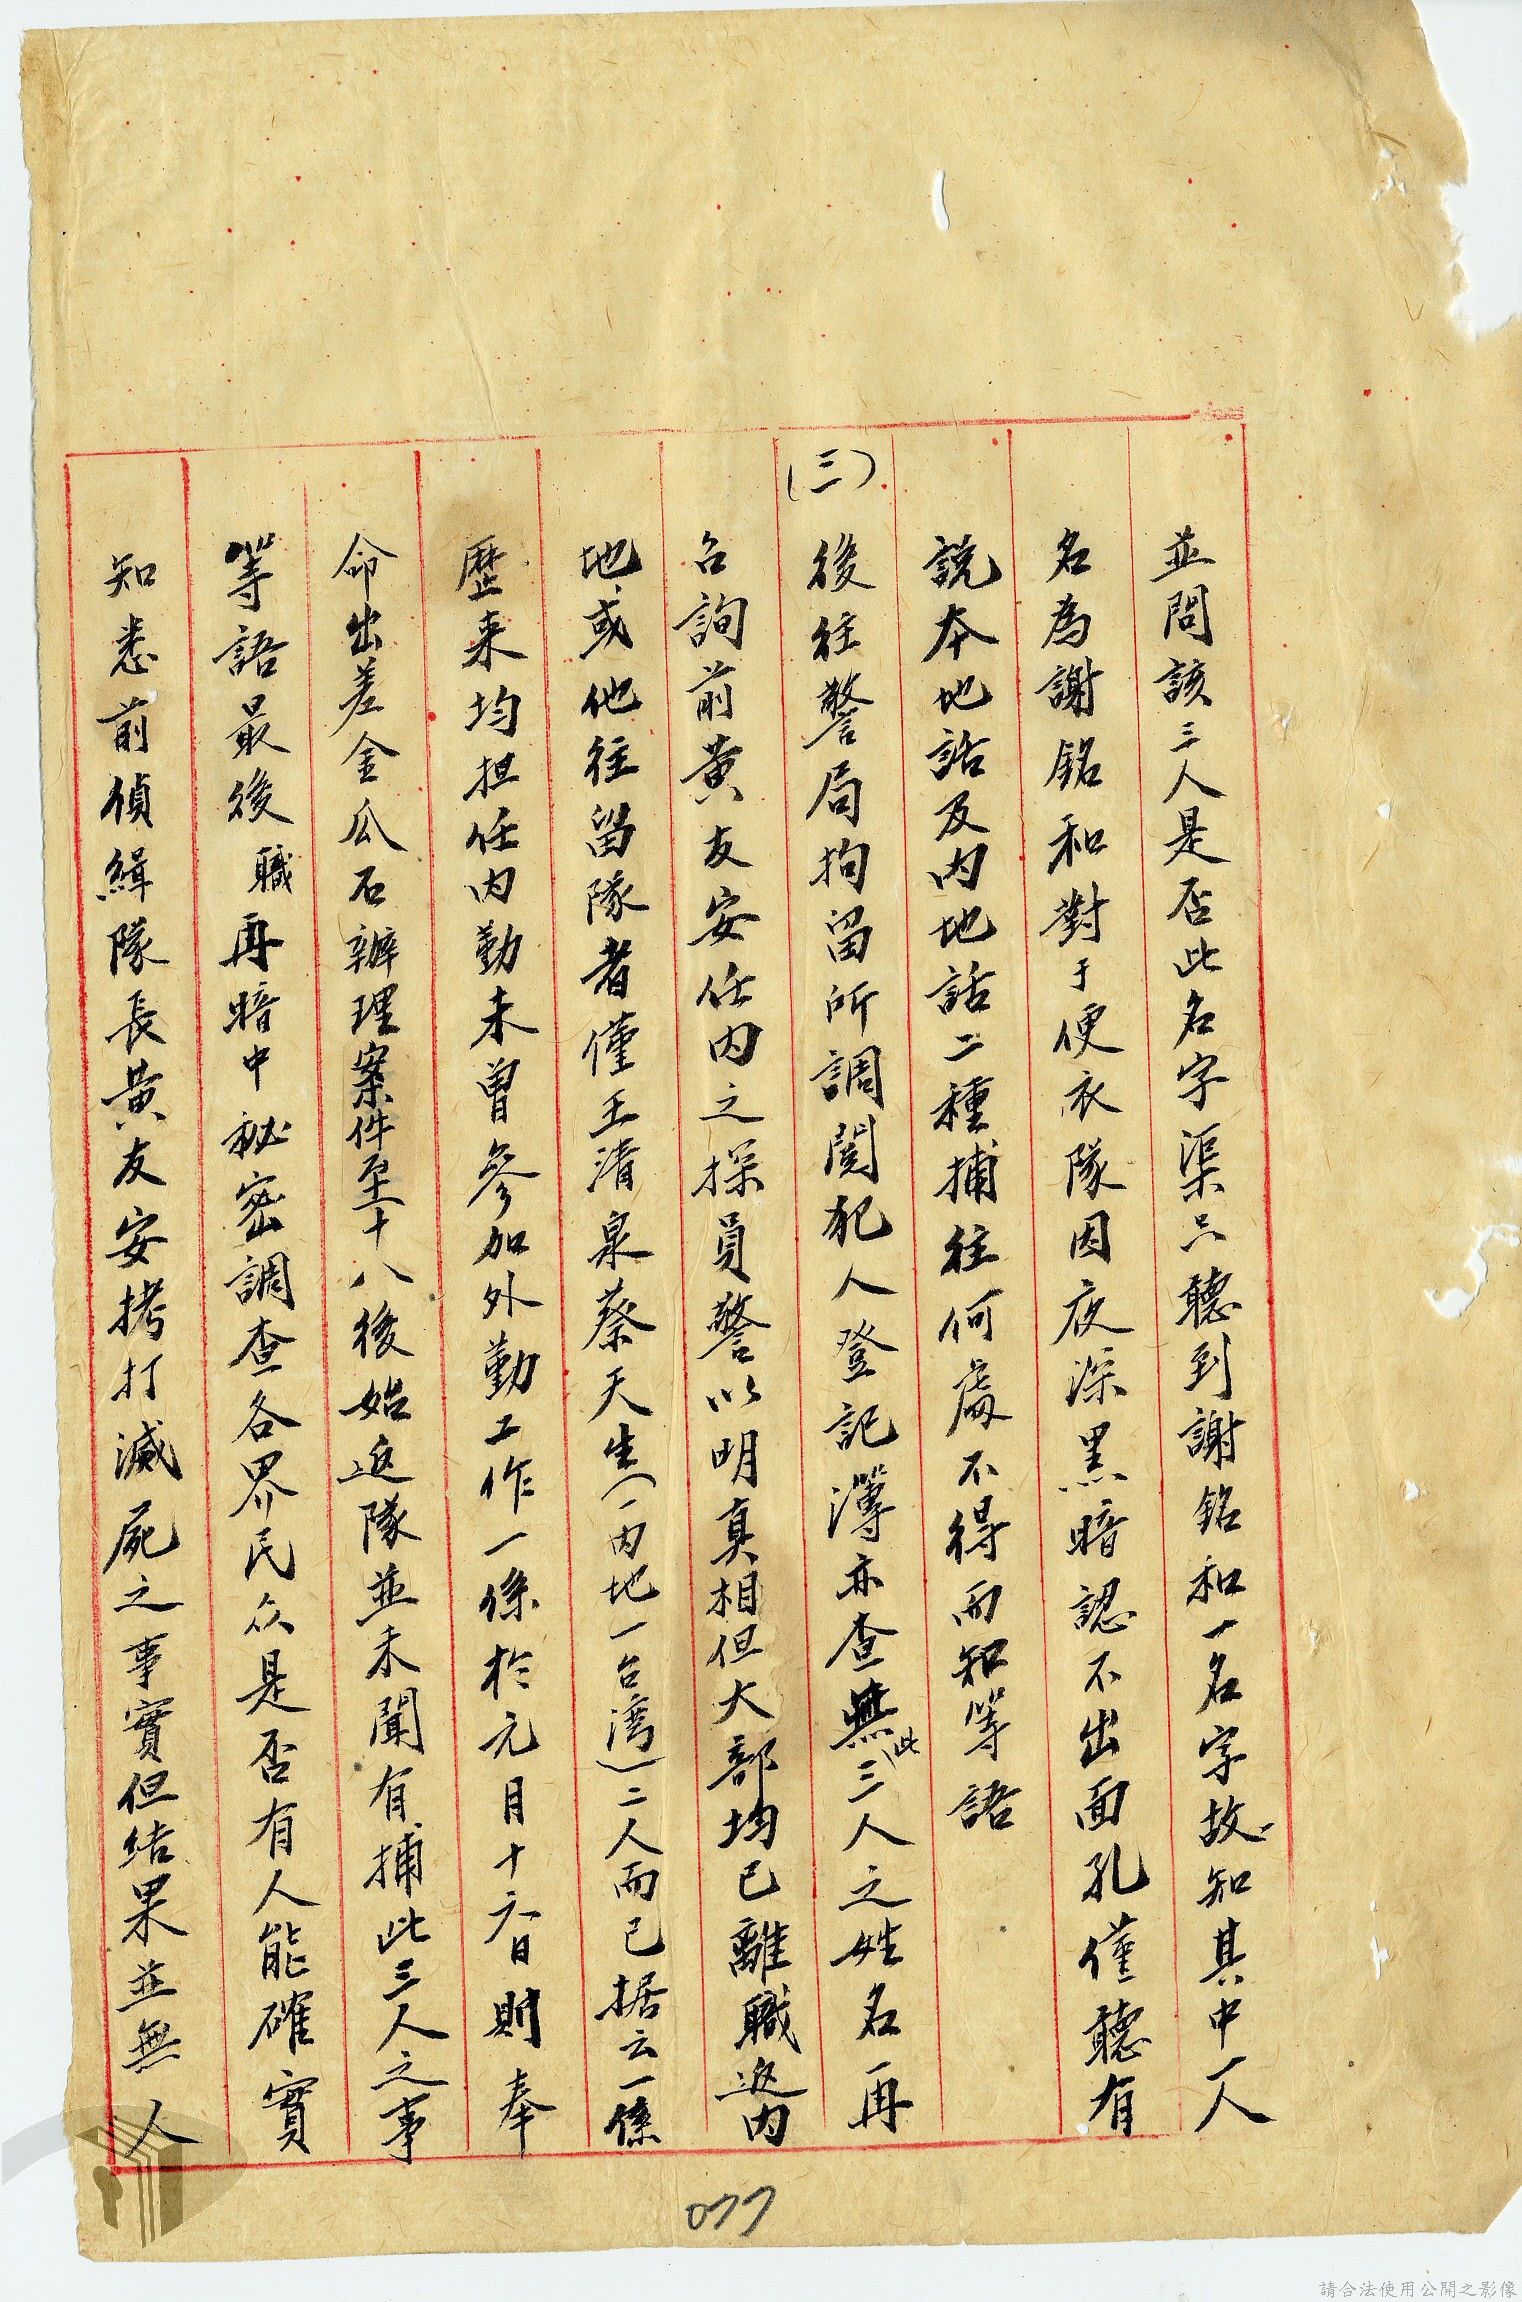 並問該三人是否此名字渠只聽到謝銘和一名字故知其中一人
名為謝銘和對于便衣隊因夜深黑暗認不出面孔僅聽有
說本地話及内地話二種捕往何處不得而知等語
(三)後往警局拘留所調閱犯人登記簿亦查無此三人之姓名再
召詢前黃友安任内之探員警以明真相但大部均已離職返内
地或他往留隊者僅王清泉蔡天生(一内地一台湾)二人而已据云一係
歷来均担任内勤未曾参加外勤工作一係於元月十六日則奉
命出差金瓜石辦理案件至十八後始返隊並未聞有捕此三人之事
等語最後職再暗中秘密調查各界民众是否有人能確實
知悉前偵緝隊長黃友安拷打滅屍之事實但结果並無人
077
請合法使用公開之影像